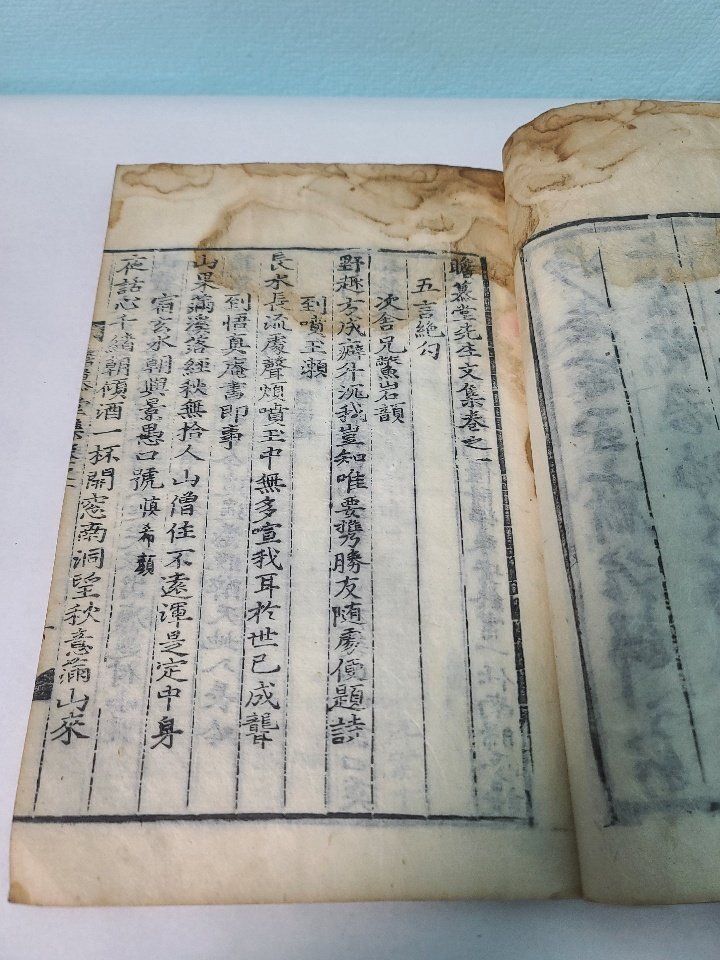 瞻慕堂先生文集卷之一
五言絶句
次舍兄鷲岩韻
野趣方成癖什沉我豈知唯要携勝友随處價題詩
到噴玉瀬
長水長流處聲煩噴玉中無多喧我耳於世已成聾
到悟真庵書即事
山果滿溪落經秋無拾人山僧住不遠渾是定中身
宿玄水朝與景愚口號 慎希顔
夜話心千緒朝傾酒一杯開窓商洞望秋意滿山來